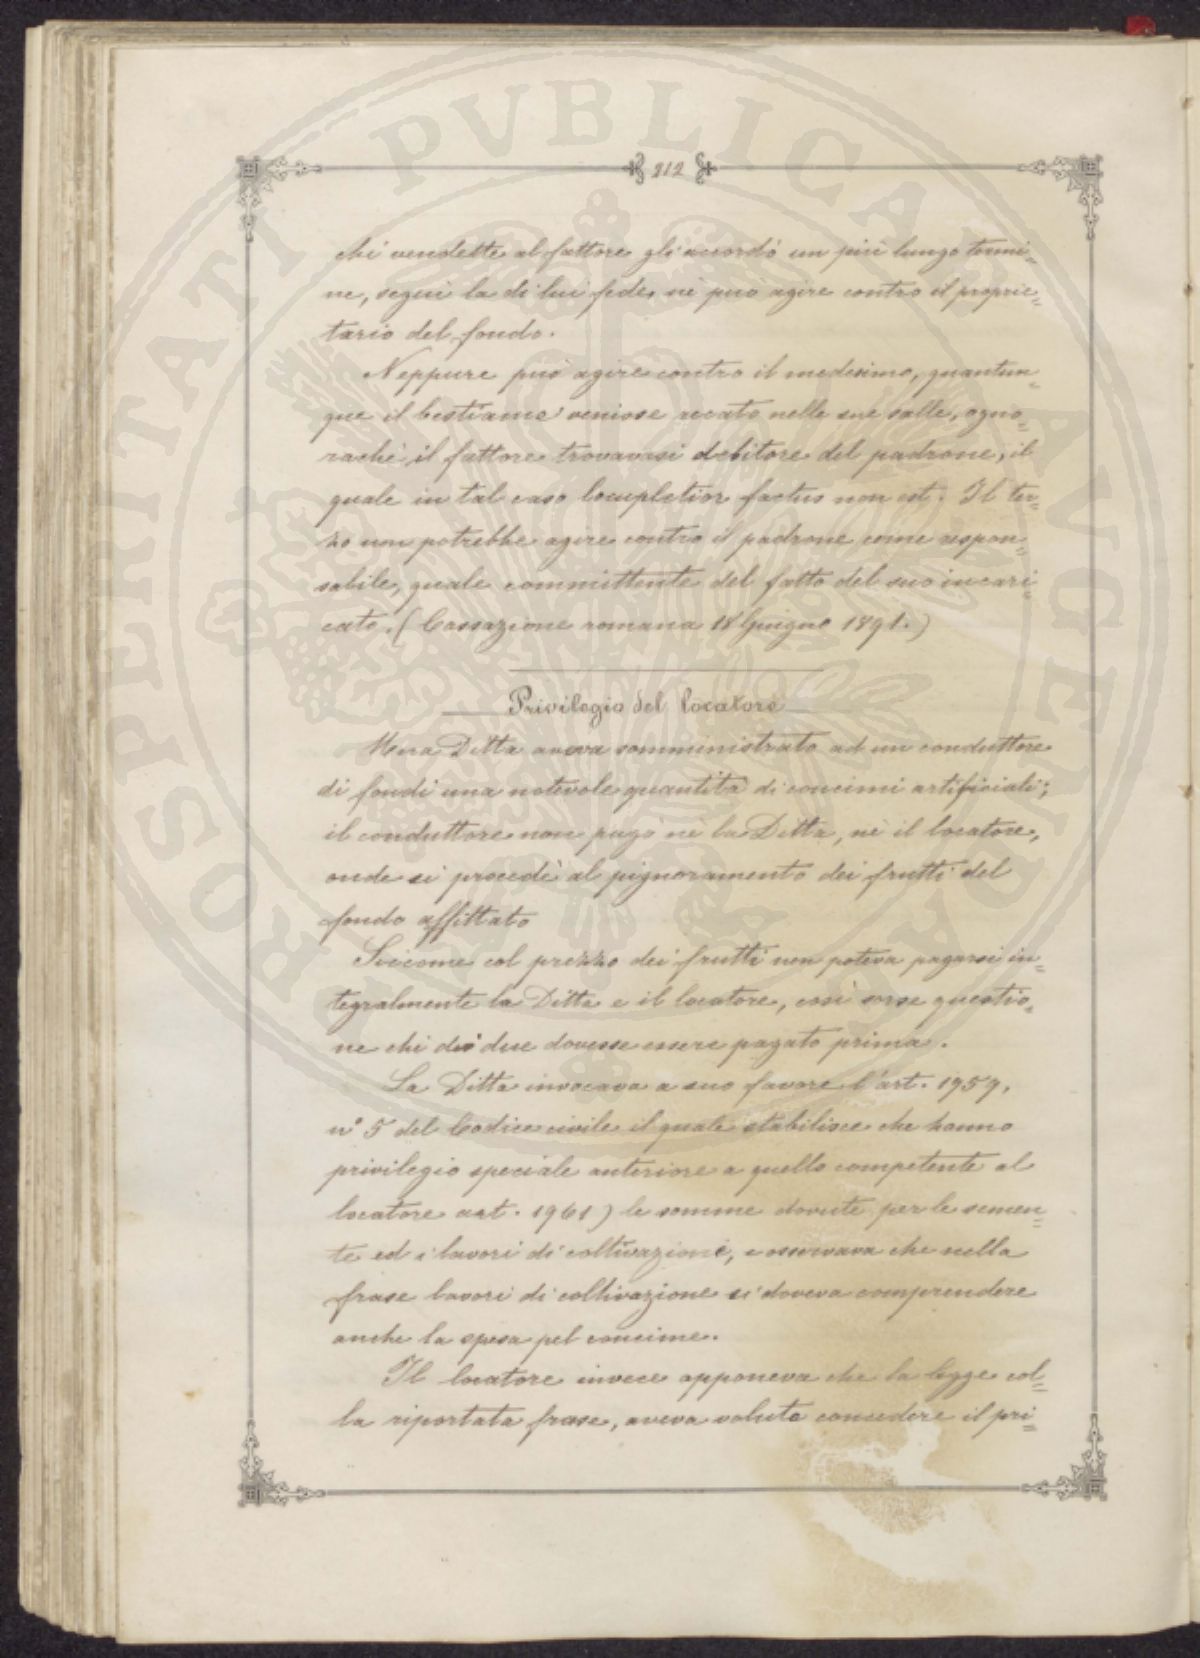 212
chi vendette al fattore gli accordò un più lungo termi=
ne, seguì la di lui fede, nè può agire contro il proprie=
tario del fondo.
Neppure può agire contro il medesimo, quantun=
que il bestiame venisse recato nelle sue stalle, ogno=
rachè il fattore trovavasi debitore del padrone, il
quale in tal caso locupletior factus non est. Il ter=
zo non potrebbe agire contro il padrone come respon=
sabile, quale committente del fatto del suo incari=
cato. (Cassazione romana 18 Giugno 1891.)
Privilegio del locatore
Una Ditta aveva somministrato ad un conduttore
di fondi una notevole quantità di concimi artificiali;
il conduttore non pagò nè la Ditta, nè il locatore,
onde si procedè al pignoramento dei frutti del
fondo affittato
Siccome col prezzo dei frutti non poteva pagarsi in=
tegralmente la Ditta e il locatore, così sorse questio=
ne chi dei due dovesse essere pagato prima.
La Ditta invocava a suo favore l'art. 1959,
n° 5 del Codice civile il quale stabilisce che hanno
privilegio speciale anteriore a quello competente al
locatore art. 1961) le somme dovute per le semen=
te ed i lavori di coltivazione, e osservava che nella
frase lavori di coltivazione si doveva comprendere
anche la spesa pel concime.
Il locatore invece opponeva che la legge col=
la riportata frase, aveva voluto concedere il pri=
PROSPERITATI PVBLICAE AVGENDAE